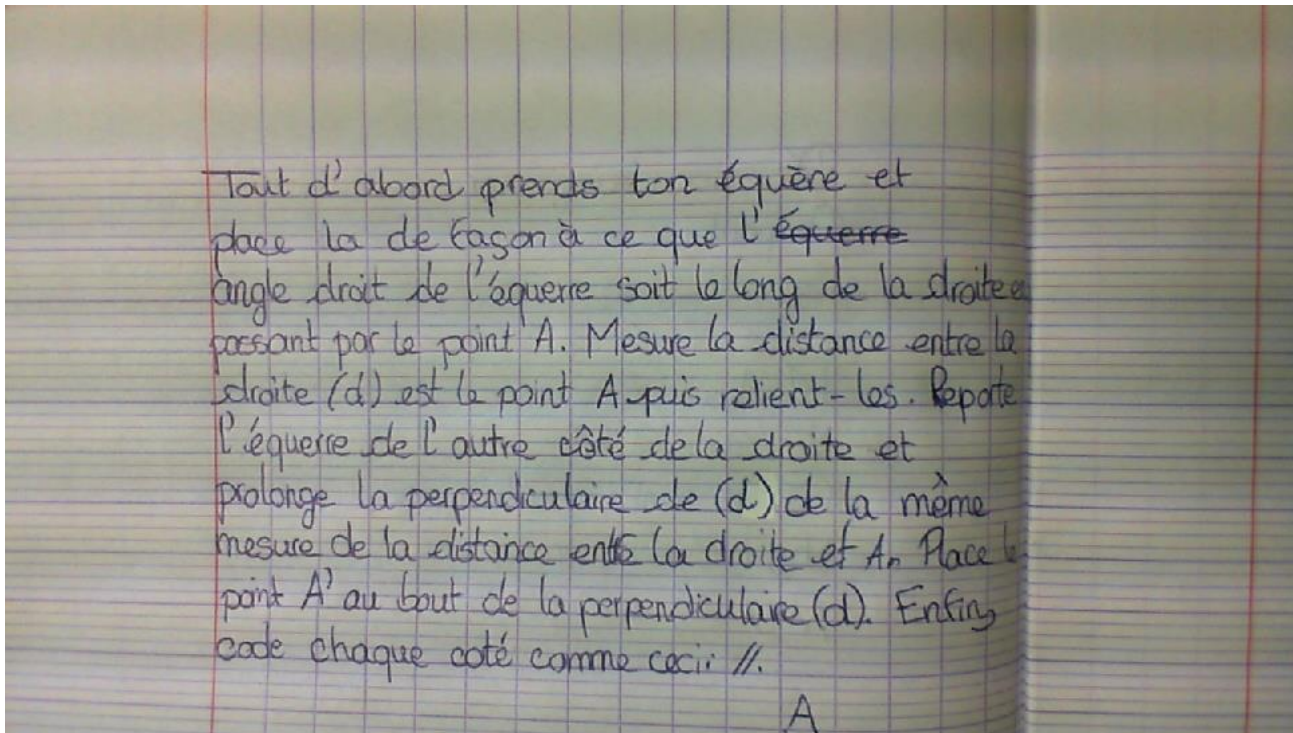 Tout d'abord prends ton équère et
place la de façon à ce que l' équerre
angle droit de l'équerre soit le long de la droite
passant par le point A. Mesure la distance entre la
droite (d) est le point A puis relient-les. Reporte
l'équerre de l'autre côté de la droite et
prolonge la perpendiculaire de (d) de la même
mesure de la distance entre la droite et A. Place le
point A' au bout de la perpendiculaire (d). Enfin,
code chaque coté comme ceci: //.
A